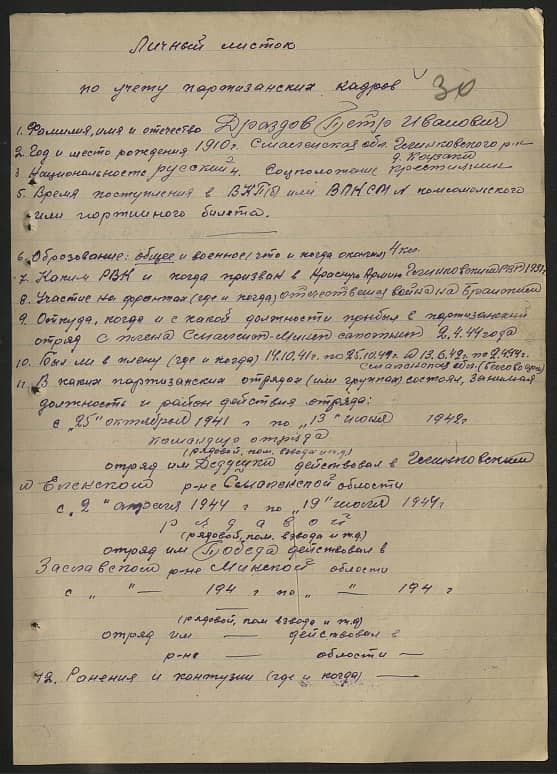 Личный листок
по учету партизанских кадров
30
1. Фамилия, имя и отечество Драздов Петр Иванович
2. Год и место рождения 1910г. Смаленская обл.
3. Националность русский 4. Соцположение крестиянин
5. Время поступления в ВКП(б) или ВЛКСМ № комсомольского
или партийного билета.
6. Оброзование: общее и военное (что и когда окончил) 4 кл.
7. Каким РВК и когда призван в Красную Армию
8. Участие на фронтах (где и когда) отечественая война на
9. Откуда, когда и с какой должности прибыл в партизанский
отряд с плена 2.4.44 года
10. Был ли в плену (где и когда) 14.10.41г. по 25.10.41г. и 13.6.42г. по 2.4.44г.
11. В каких партизанских отрядах (или группах) состоял, занимая
должность и район действия отряда:
с „25" октебрия 1941 г по „13" июня 1942г
командир отряда
(рядовой, пом. взвода и т.д.)
отряд им Дедушки действовал в
и р-не Смаленской области
с „2" апреля 1944 г по „19" июля 1944г
рядавой
(рядовой, пом. взвода и т.д.)
отряд им Победа действовал в
Заславском р-не Минской области
с „ " — 194 г по „ — " — 194 г
(рядовой, пом взвода и т.д)
отряд им — действовал в
р-не — области —
12. Ранения и контузии (где и когда) —